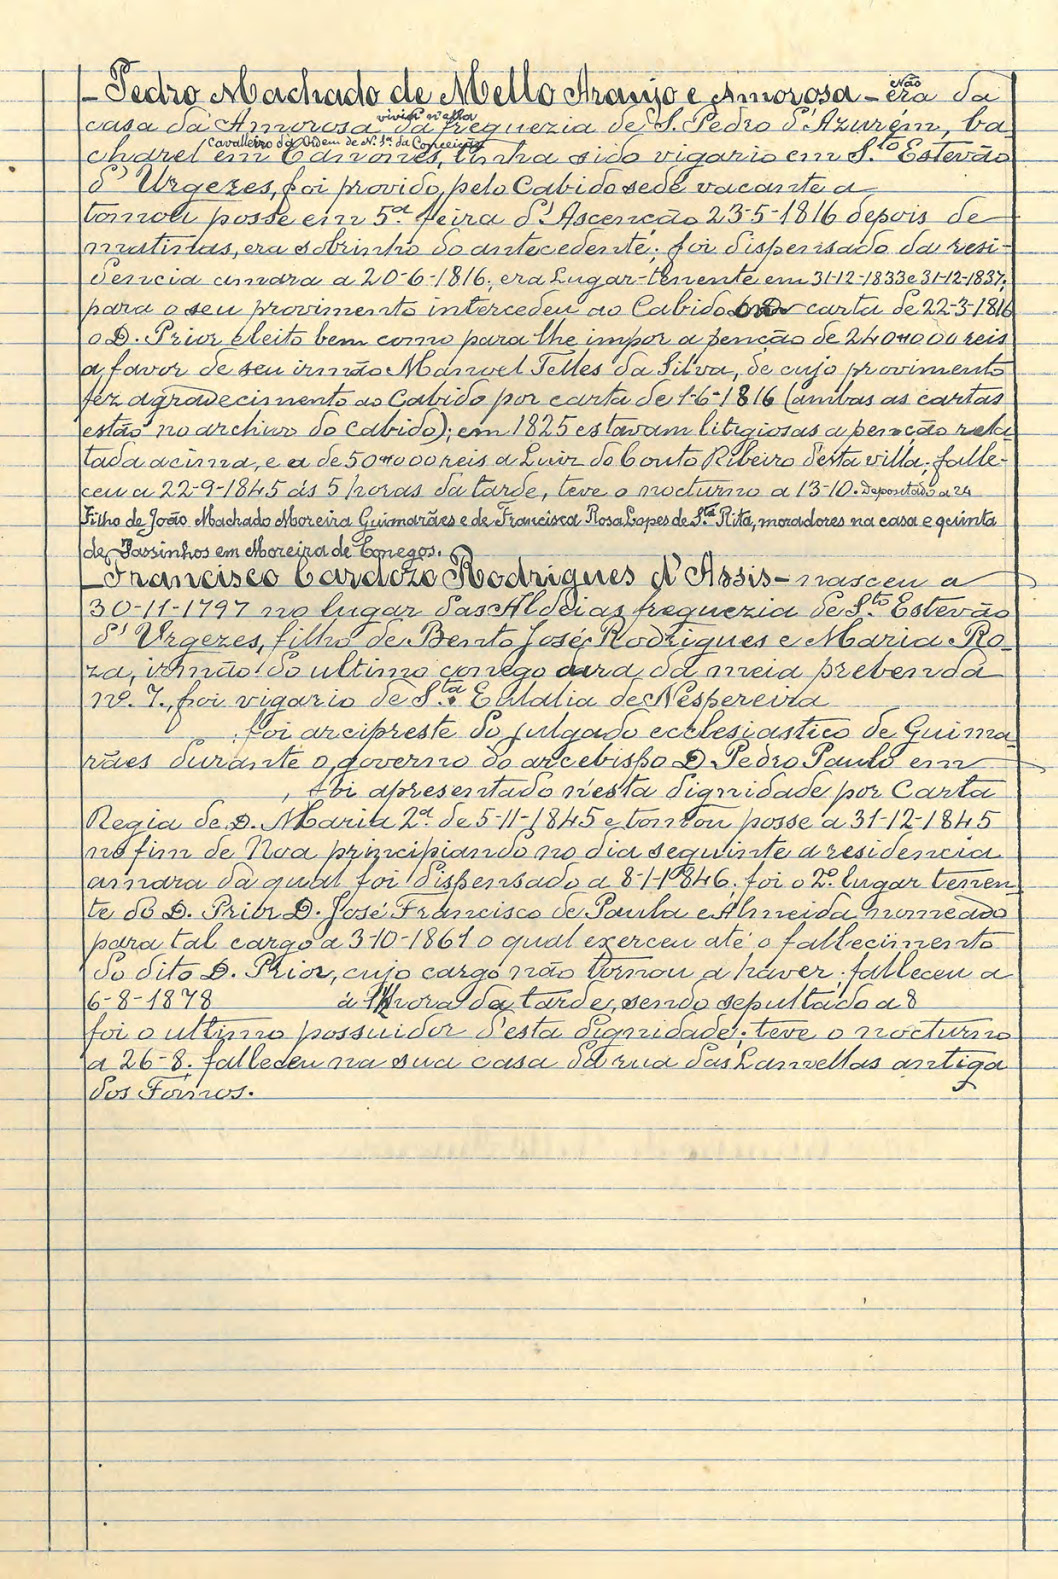 – Pedro Machado de Mello Araujo e Amorosa – Não era da
casa da Amorosa viveu n'ella da freguezia de S. Pedro d'Azurém, ba
charel em Canones, Cavalleiro da Ordem de N. Sra. da Conceição tinha sido vigario em S.to Estevão
d'Urgezes, foi provido pelo Cabido sede vacante a
tomou posse em 5ª feira d'Ascenção 23-5-1816 depois de
matinas, era sobrinho do antecedente; foi dispensado da resi-
dencia amara a 20-6-1816; era Lugar-tenente em 31-12-1833 e 31-12-1837;
para o seu provimento intercedeu ao Cabido carta de 22-3-1816
o D. Prior eleito bem como para lhe impor a penção de 240$000 reis
a favor de seu irmão Manuel Telles da Silva, de cujo provimento
fez agradecimento ao Cabido por carta de 1-6-1816 (ambas as cartas
estão no archivo do Cabido); em 1825 estavam litigiosas a penção rela-
tada acima, e a de 50$000 reis a Luiz do Couto Ribeiro d'esta villa; falle-
ceu a 22-9-1845 ás 5 horas da tarde, teve o nocturno a 13-10. Depositado a 24
Filho de João Machado Moreira Guimarães e de Francisca Rosa Lopes de S.ta Rita, moradores na casa e quinta
de Sassinhos em Moreira de Conegos.
– Francisco Cardozo Rodrigues d'Assis – nasceu a
30-11-1797 no lugar das Aldeias, freguezia de S.to Estevão
d'Urgezes, filho de Bento José Rodrigues e Maria Ro-
za, irmão do ultimo conego cura da meia prebenda
nº. 7., foi vigario de S.ta Eulalia de Nespereira
; foi arcipreste do julgado ecclesiastico de Guima-
rães durante o governo do arcebispo D. Pedro Paulo em
, foi apresentado n'esta dignidade por Carta
Regia de D. Maria 2ª. de 5-11-1845 e tomou posse a 31-12-1845
no fim de Noa principiando no dia seguinte a residencia
amara da qual foi dispensado a 8-1-1846; foi o 2º. lugar tenen-
te do D. Prior D. José Francisco de Paula e Almeida, nomeado
para tal cargo a 3-10-1861 o qual exerceu até o fallecimento
do dito D. Prior, cujo cargo não tornou a haver; falleceu a
6-8-1878 á 1 hora da tarde, sendo sepultado a 8
foi o ultimo possuidor d'esta dignidade; teve o nocturno
a 26-8; falleceu na sua casa da rua das Lamellas antiga
dos Fornos.